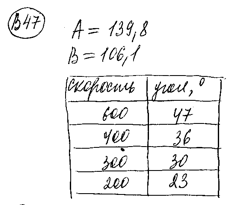 В47
A = 139,8
B = 106,1
скорость угол, °
600 47
400 36
300 30
200 23